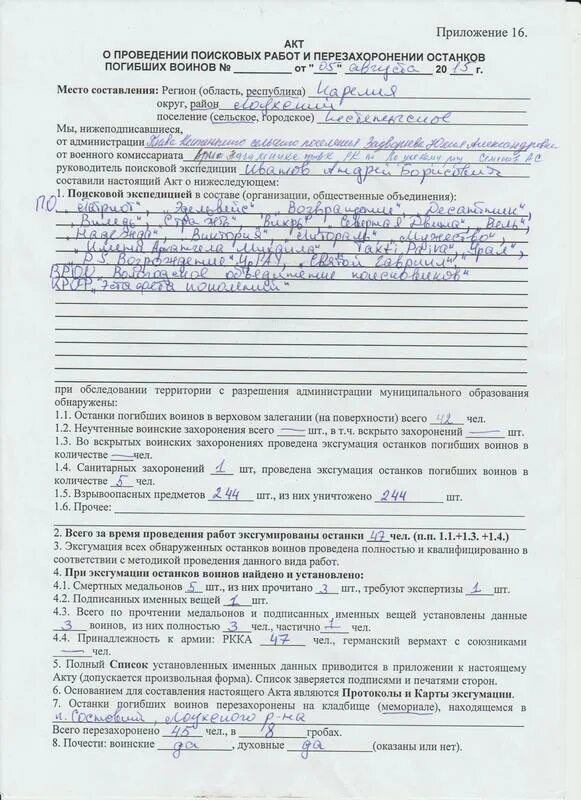 Приложение 16.
АКТ
О ПРОВЕДЕНИИ ПОИСКОВЫХ РАБОТ И ПЕРЕЗАХОРОНЕНИИ ОСТАНКОВ
ПОГИБШИХ ВОИНОВ № ________ от "05" августа 2015 г.
Место составления: Регион (область, республика) Карелия
округ, район Лоухский
поселение (сельское, городское) Кестеньгское
Мы, нижеподписавшиеся,
от администрации Глава Кестеньгского сельского поселения Задворнева Юлия Александровна
от военного комиссариата Врио Начальника РК по Лоухскому А.С.
руководитель поисковой экспедиции Иванов Андрей Борисович
составили настоящий Акт о нижеследующем:
1. Поисковой экспедицией в составе (организации, общественные объединения):
ПО „Патриот", „Эдельвейс", „Возвращение", „Десантники",
„Вилегь", „Стражъ", „Вихрь", „Северная Двина", „Вель",
„Надежда", „Виктория", „Литораль", „Мужество",
„Имени Архангела Михаила", „Takti Päivä", „Урал",
„Р.S. Возрождение УрГАУ", „Святой Гавриил",
ВРОО „Вологодское объединение поисковиков"
„Эстафета поколений"
при обследовании территории с разрешения администрации муниципального образования
обнаружены:
1.1. Останки погибших воинов в верховом залегании (на поверхности) всего 42 чел.
1.2. Неучтенные воинские захоронения всего — шт., в т.ч. вскрыто захоронений — шт.
1.3. Во вскрытых воинских захоронениях проведена эксгумация останков погибших воинов в
количестве — чел.
1.4. Санитарных захоронений 1 шт, проведена эксгумация останков погибших воинов в
количестве 5 чел.
1.5. Взрывоопасных предметов 244 шт., из них уничтожено 244 шт.
1.6. Прочее:
2. Всего за время проведения работ эксгумированы останки 47 чел. (п.п. 1.1.+1.3. +1.4.)
3. Эксгумация всех обнаруженных останков воинов проведена полностью и квалифицированно в
соответствии с методикой проведения данного вида работ.
4. При эксгумации останков воинов найдено и установлено:
4.1. Смертных медальонов 5 шт., из них прочитано 3 шт., требуют экспертизы 1 шт.
4.2. Подписанных именных вещей 1 шт.
4.3. Всего по прочтении медальонов и подписанных именных вещей установлены данные
3 воинов, из них полностью 3 чел., частично 1 чел.
4.4. Принадлежность к армии: РККА 47 чел., германский вермахт с союзниками
— чел.
5. Полный Список установленных именных данных приводится в приложении к настоящему
Акту (допускается произвольная форма). Список заверяется подписями и печатями сторон.
6. Основанием для составления настоящего Акта являются Протоколы и Карты эксгумации.
7. Останки погибших воинов перезахоронены на кладбище (мемориале), находящемся в
п. Сосновый, Лоухского р-на
Всего перезахоронено 45 чел., в 8 гробах.
8. Почести: воинские да, духовные да (оказаны или нет).